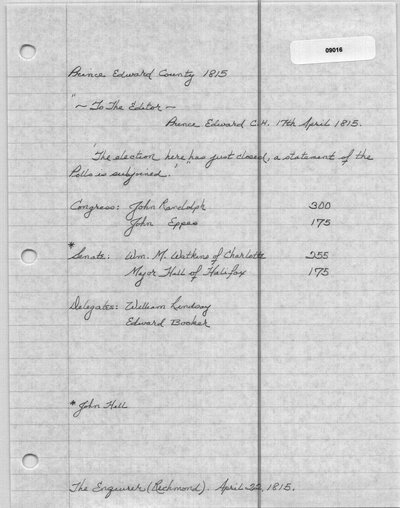 09016
Prince Edward County 1815
"~ To The Editor ~
Prince Edward C.H. 17th April 1815.
"The election here has just closed, a statement of the
Polls is subjoined."
Congress: John Randolph 300
John Eppes 175
* Senate: Wm. M. Watkins of Charlotte 255
Major Hall of Halifax 175
Delegates: William Lindsay
Edward Booker
* John Hall
The Enquirer (Richmond). April 22, 1815.